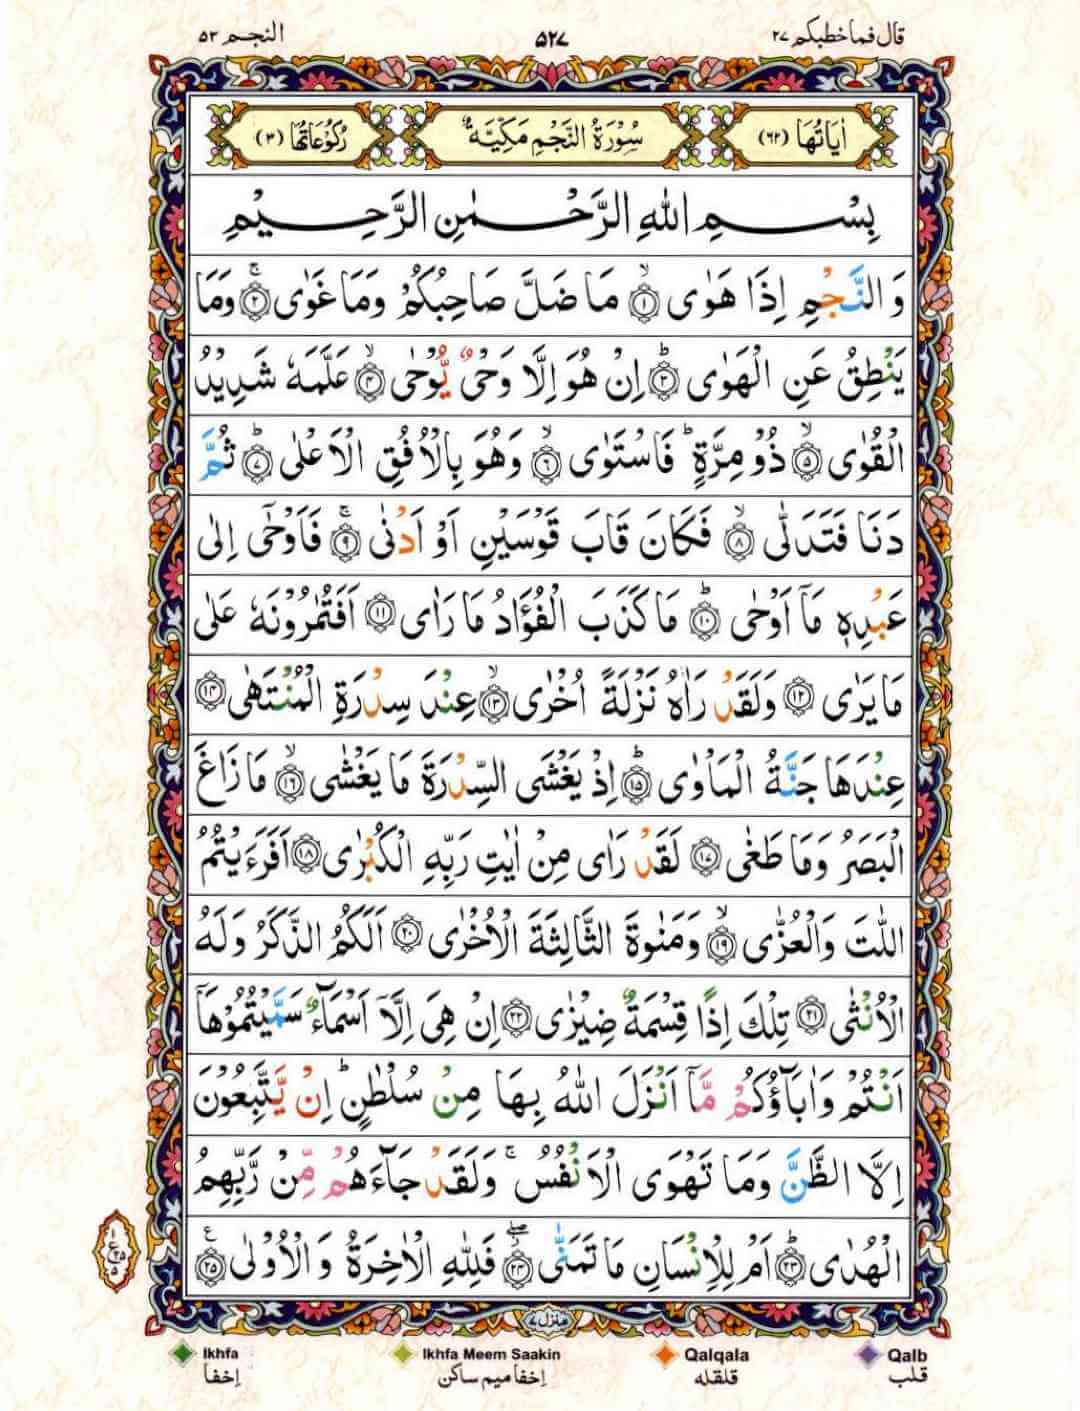 قال فما خطبکم ۲۷ ۵۲۷ النجم ۵۳
اٰیَاتُهَا (۶۲) سُوْرَةُ النَّجْمِ مَكِّيَّةٌ رُكُوْعَاتُهَا (۳)
بِسْمِ اللّٰهِ الرَّحْمٰنِ الرَّحِيْمِ
وَ النَّجْمِ اِذَا هَوٰى ۙ‏﴿۱﴾ مَا ضَلَّ صَاحِبُكُمْ وَمَا غَوٰى ۚ‏﴿۲﴾ وَمَا
يَنْطِقُ عَنِ الْهَوٰى ؕ‏﴿۳﴾ اِنْ هُوَ اِلَّا وَحْىٌ يُّوْحٰى ۙ‏﴿۴﴾ عَلَّمَهٗ شَدِيْدُ
الْقُوٰى ۙ‏﴿۵﴾ ذُوْ مِرَّةٍ ؕ فَاسْتَوٰى ۙ‏﴿۶﴾ وَهُوَ بِالْاُفُقِ الْاَعْلٰى ؕ‏﴿۷﴾ ثُمَّ
دَنَا فَتَدَلّٰى ۙ‏﴿۸﴾ فَكَانَ قَابَ قَوْسَيْنِ اَوْ اَدْنٰى ۚ‏﴿۹﴾ فَاَوْحٰۤى اِلٰى
عَبْدِهٖ مَاۤ اَوْحٰى ؕ‏﴿۱۰﴾ مَا كَذَبَ الْفُؤَادُ مَا رَاٰى ‏﴿۱۱﴾ اَفَتُمٰرُوْنَهٗ عَلٰى
مَا يَرٰى ‏﴿۱۲﴾ وَلَقَدْ رَاٰهُ نَزْلَةً اُخْرٰى ۙ‏﴿۱۳﴾ عِنْدَ سِدْرَةِ الْمُنْتَهٰى ‏﴿۱۴﴾
عِنْدَهَا جَنَّةُ الْمَاْوٰى ؕ‏﴿۱۵﴾ اِذْ يَغْشَى السِّدْرَةَ مَا يَغْشٰى ۙ‏﴿۱۶﴾ مَا زَاغَ
الْبَصَرُ وَمَا طَغٰى ‏﴿۱۷﴾ لَقَدْ رَاٰى مِنْ اٰيٰتِ رَبِّهِ الْكُبْرٰى ‏﴿۱۸﴾ اَفَرَءَيْتُمُ
اللّٰتَ وَالْعُزّٰى ۙ‏﴿۱۹﴾ وَمَنٰوةَ الثَّالِثَةَ الْاُخْرٰى ‏﴿۲۰﴾ اَلَكُمُ الذَّكَرُ وَلَهُ
الْاُنْثٰى ‏﴿۲۱﴾ تِلْكَ اِذًا قِسْمَةٌ ضِيْزٰى ‏﴿۲۲﴾ اِنْ هِىَ اِلَّاۤ اَسْمَآءٌ سَمَّيْتُمُوْهَاۤ
اَنْتُمْ وَاٰبَآؤُكُمْ مَّاۤ اَنْزَلَ اللّٰهُ بِهَا مِنْ سُلْطٰنٍ ؕ اِنْ يَّتَّبِعُوْنَ
اِلَّا الظَّنَّ وَمَا تَهْوَى الْاَنْفُسُ ۚ وَلَقَدْ جَآءَهُمْ مِّنْ رَّبِّهِمُ
الْهُدٰى ؕ‏﴿۲۳﴾ اَمْ لِلْاِنْسَانِ مَا تَمَنّٰى ۖ‏﴿۲۴﴾ فَلِلّٰهِ الْاٰخِرَةُ وَ الْاُوْلٰى ‏﴿۲۵﴾ ع
۱ ع ۲۵ ۵
منزل ۷
Ikhfa Ikhfa Meem Saakin Qalqala Qalb
إخفا إخفا ميم ساكن قلقله قلب